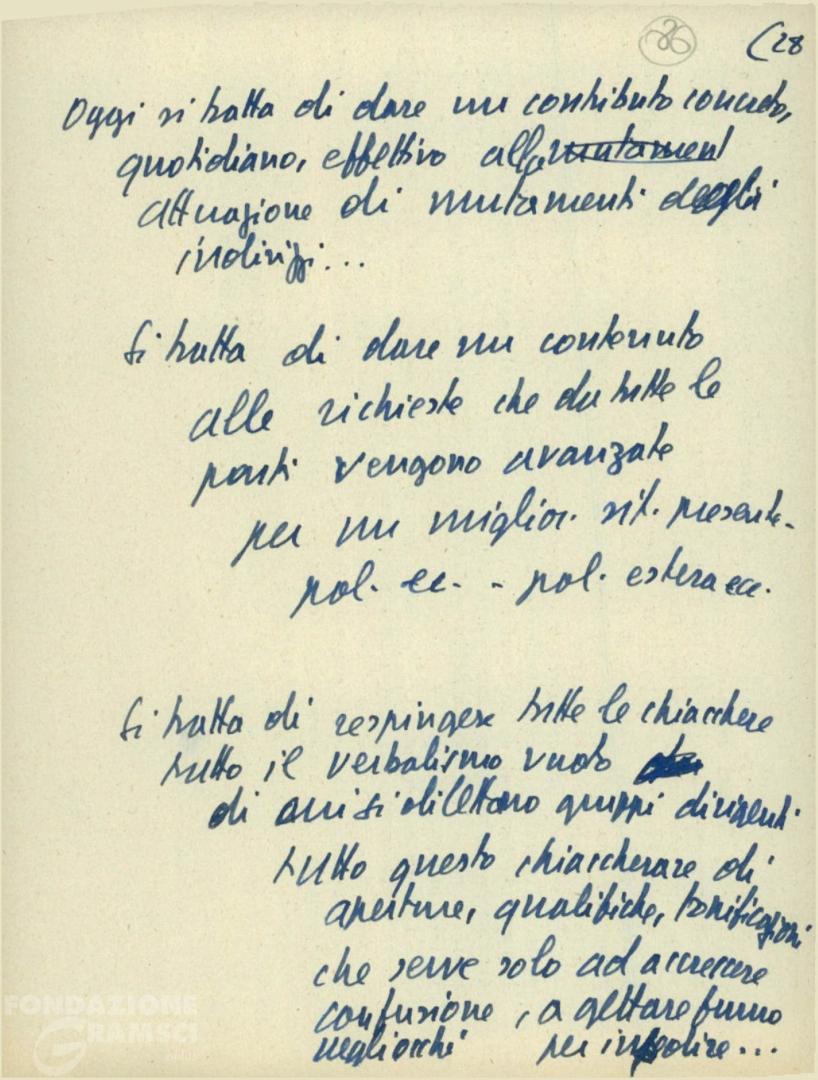 26 (28
Oggi si tratta di dare un contributo concreto,
quotidiano, effettivo alla mutament
attuazione di mutamenti degli
indirizzi...
Si tratta di dare un contenuto
alle richieste che da tutte le
parti vengono avanzate
per un miglior. sit. presente -
pol. ec. - pol. estera ecc.
Si tratta di respingere tutte le chiacchere
tutto il verbalismo vuoto
di cui si dilettano gruppi dirigenti
tutto questo chiaccherare di
aperture, qualifiche, tonificazioni
che serve solo ad accrescere
confusione, a gettare fumo
negli occhi per impedire...
FONDAZIONE
GRAMSCI